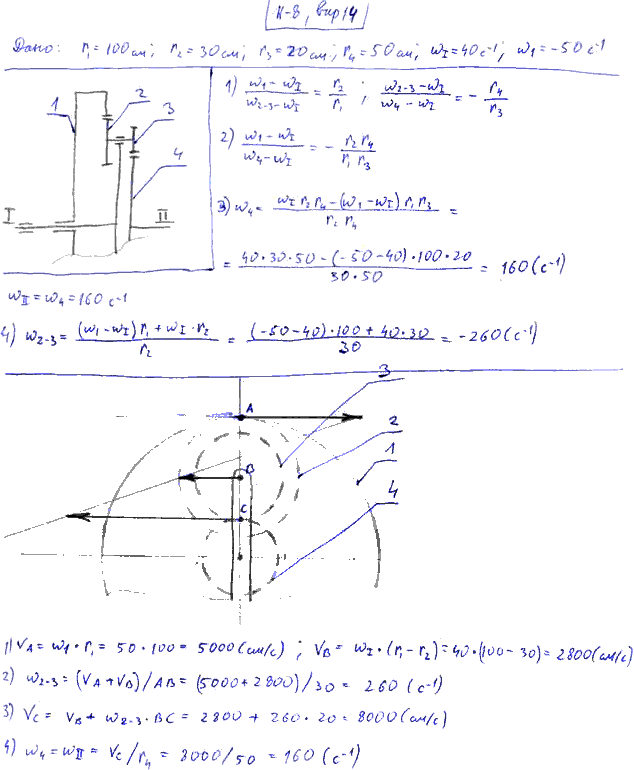 К-8, вар 14
Дано: r₁ = 100 см; r₂ = 30 см; r₃ = 20 см; r₄ = 50 см; ω_I = 40 с⁻¹; ω₁ = -50 с⁻¹
1 2 3 4 I II
1) (ω₁ - ω_I)/(ω₂₋₃ - ω_I) = r₂/r₁ ; (ω₂₋₃ - ω_I)/(ω₄ - ω_I) = - r₄/r₃
2) (ω₁ - ω_I)/(ω₄ - ω_I) = - (r₂ r₄)/(r₁ r₃)
3) ω₄ = (ω_I r₂ r₄ - (ω₁ - ω_I) r₁ r₃)/(r₂ r₄) =
= (40·30·50 - (-50-40)·100·20)/(30·50) = 160 (с⁻¹)
ω_II = ω₄ = 160 с⁻¹
4) ω₂₋₃ = ((ω₁ - ω_I) r₁ + ω_I · r₂)/r₂ = ((-50-40)·100 + 40·30)/30 = -260 (с⁻¹)
3
A
2
1
B
4
C
1) V_A = ω₁ · r₁ = 50 · 100 = 5000 (см/с) ; V_B = ω_I · (r₁ - r₂) = 40·(100 - 30) = 2800 (см/с)
2) ω₂₋₃ = (V_A + V_B)/AB = (5000 + 2800)/30 = 260 (с⁻¹)
3) V_C = V_B + ω₂₋₃ · BC = 2800 + 260 · 20 = 8000 (см/с)
4) ω₄ = ω_II = V_C/r₄ = 8000/50 = 160 (с⁻¹)